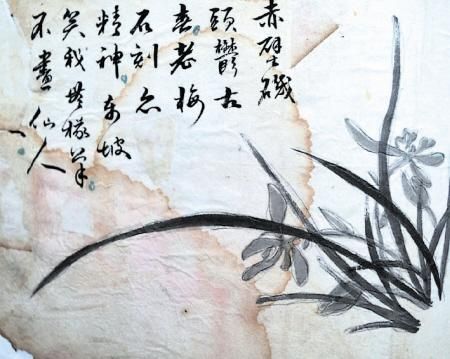 赤壁磯
頭鬱古
春老梅
石刻亦
精神東坡
笑我無椽筆
不畫仙人